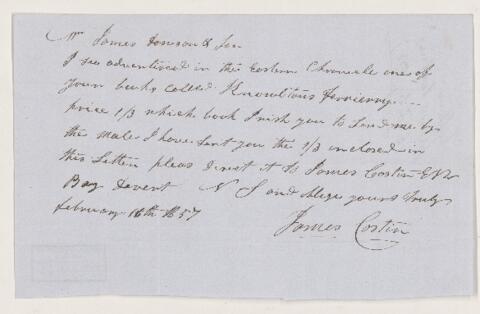 Mr James Dawson & Son
I see advertised in the Eastern Chronicle one of
your books called Knowltons
price 1/3 which book I wish you to send me by
the male I have sent you the 1/3 inclosed in
this Letter pleas direct it to James Costin
Bay N S and oblige yours truly
February 16th 1857
James Costin